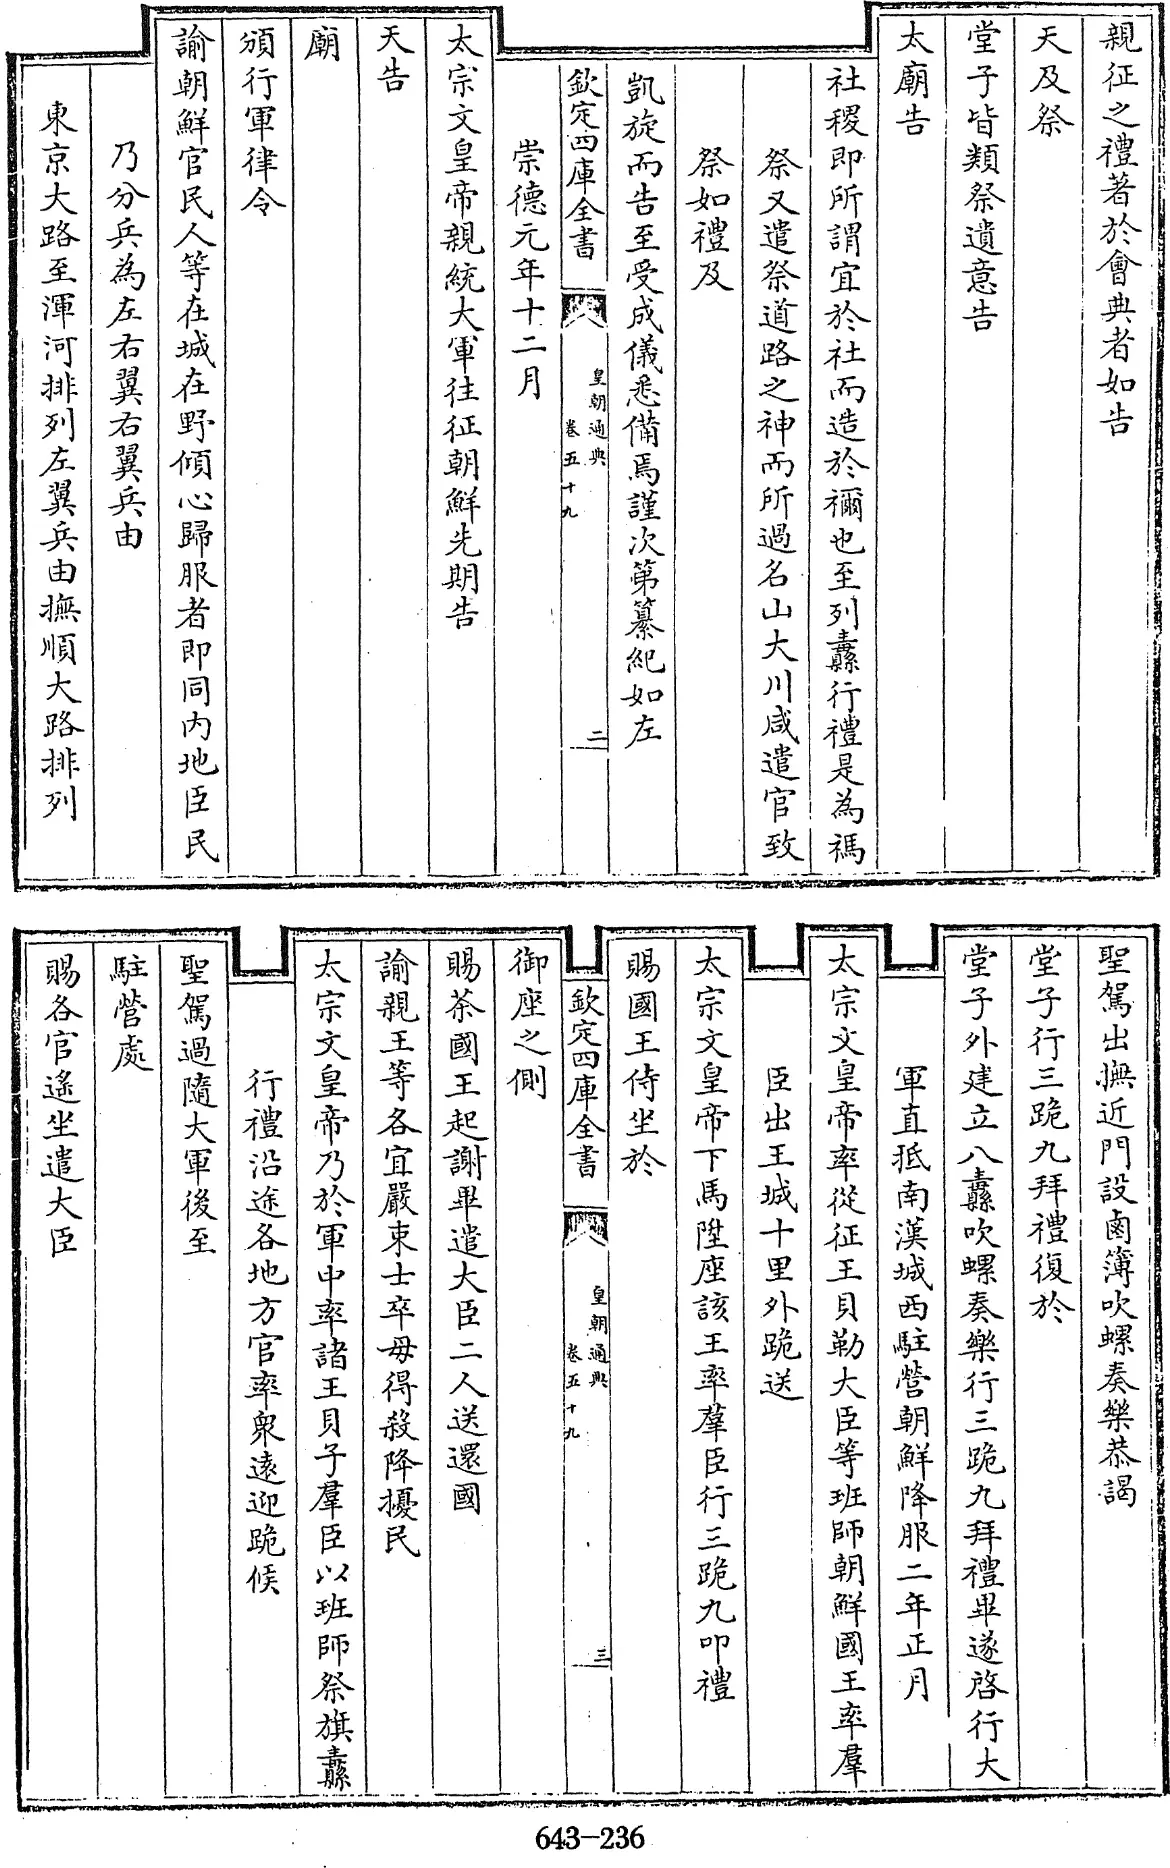 親征之禮著於會典者如告
天及祭
堂子皆類祭遺意告
太廟告
社稷即所謂宜於社而造於禰也至列纛行禮是為禡
祭又遣祭道路之神而所過名山大川咸遣官致
祭如禮及
凱旋而告至受成儀悉備焉謹次第纂紀如左
欽定四庫全書
皇朝通典
卷五十九
二
崇德元年十二月
太宗文皇帝親統大軍往征朝鮮先期告
天告
廟
頒行軍律令
諭朝鮮官民人等在城在野傾心歸服者即同內地臣民
乃分兵為左右翼右翼兵由
東京大路至渾河排列左翼兵由撫順大路排列
聖駕出撫近門設鹵簿吹螺奏樂恭謁
堂子行三跪九拜禮復於
堂子外建立八纛吹螺奏樂行三跪九拜禮畢遂啓行大
軍直抵南漢城西駐營朝鮮降服二年正月
太宗文皇帝率從征王貝勒大臣等班師朝鮮國王率羣
臣出王城十里外跪送
太宗文皇帝下馬陞座該王率羣臣行三跪九叩禮
賜國王侍坐於
欽定四庫全書
皇朝通典
卷五十九
三
御座之側
賜茶國王起謝畢遣大臣二人送還國
諭親王等各宜嚴束士卒毋得殺降擾民
太宗文皇帝乃於軍中率諸王貝子羣臣以班師祭旗纛
行禮沿途各地方官率衆遠迎跪候
聖駕過隨大軍後至
駐營處
賜各官遙坐遣大臣
643-236